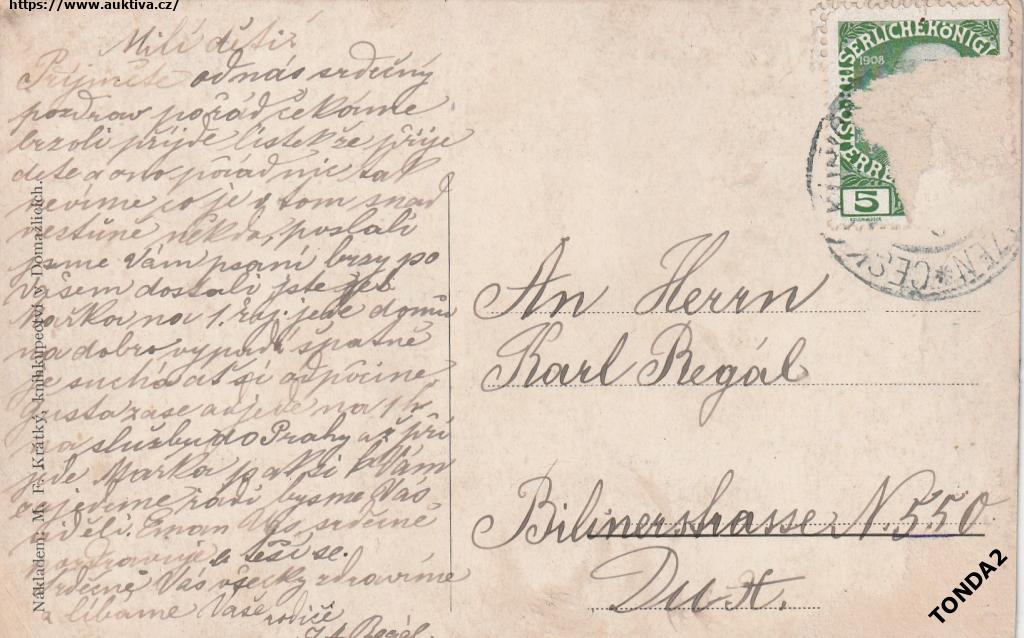 https://www.auktiva.cz/
Milí děti
Přijměte od nás srdečný
pozdrav pořád čekáme
brzoli přijde lístek že přije
dete a ono pořád nic tak
nevíme co je v tom snad
nestůně někdo, poslali
jsme Vám psaní brzy po
Vašem dostali jste jej
Mařka na 1. říj. jede domů
na dobro vypadá špatně
je suchá ať si odpočine,
Gusta zase odjede na 1 ho
na službu do Prahy až při
jde Mařka pak si k Vám
zajedeme rádi bysme Vás
viděli. Eman Vás srdečně
pozdravuje a těší se.
Srdečně Vás všecky zdravíme
a líbáme Vaše
rodiče
J. A. Regál
Nákladem: M. F. Krátký, knihkupectví v Domažlicích.
KAISERLICHE KÖNIGL
1908
ÖSTERRE
5
ZEN * ČES
An Herrn
Karl Regál
Bilinerstrasse N. 550
Dux.
TONDA2